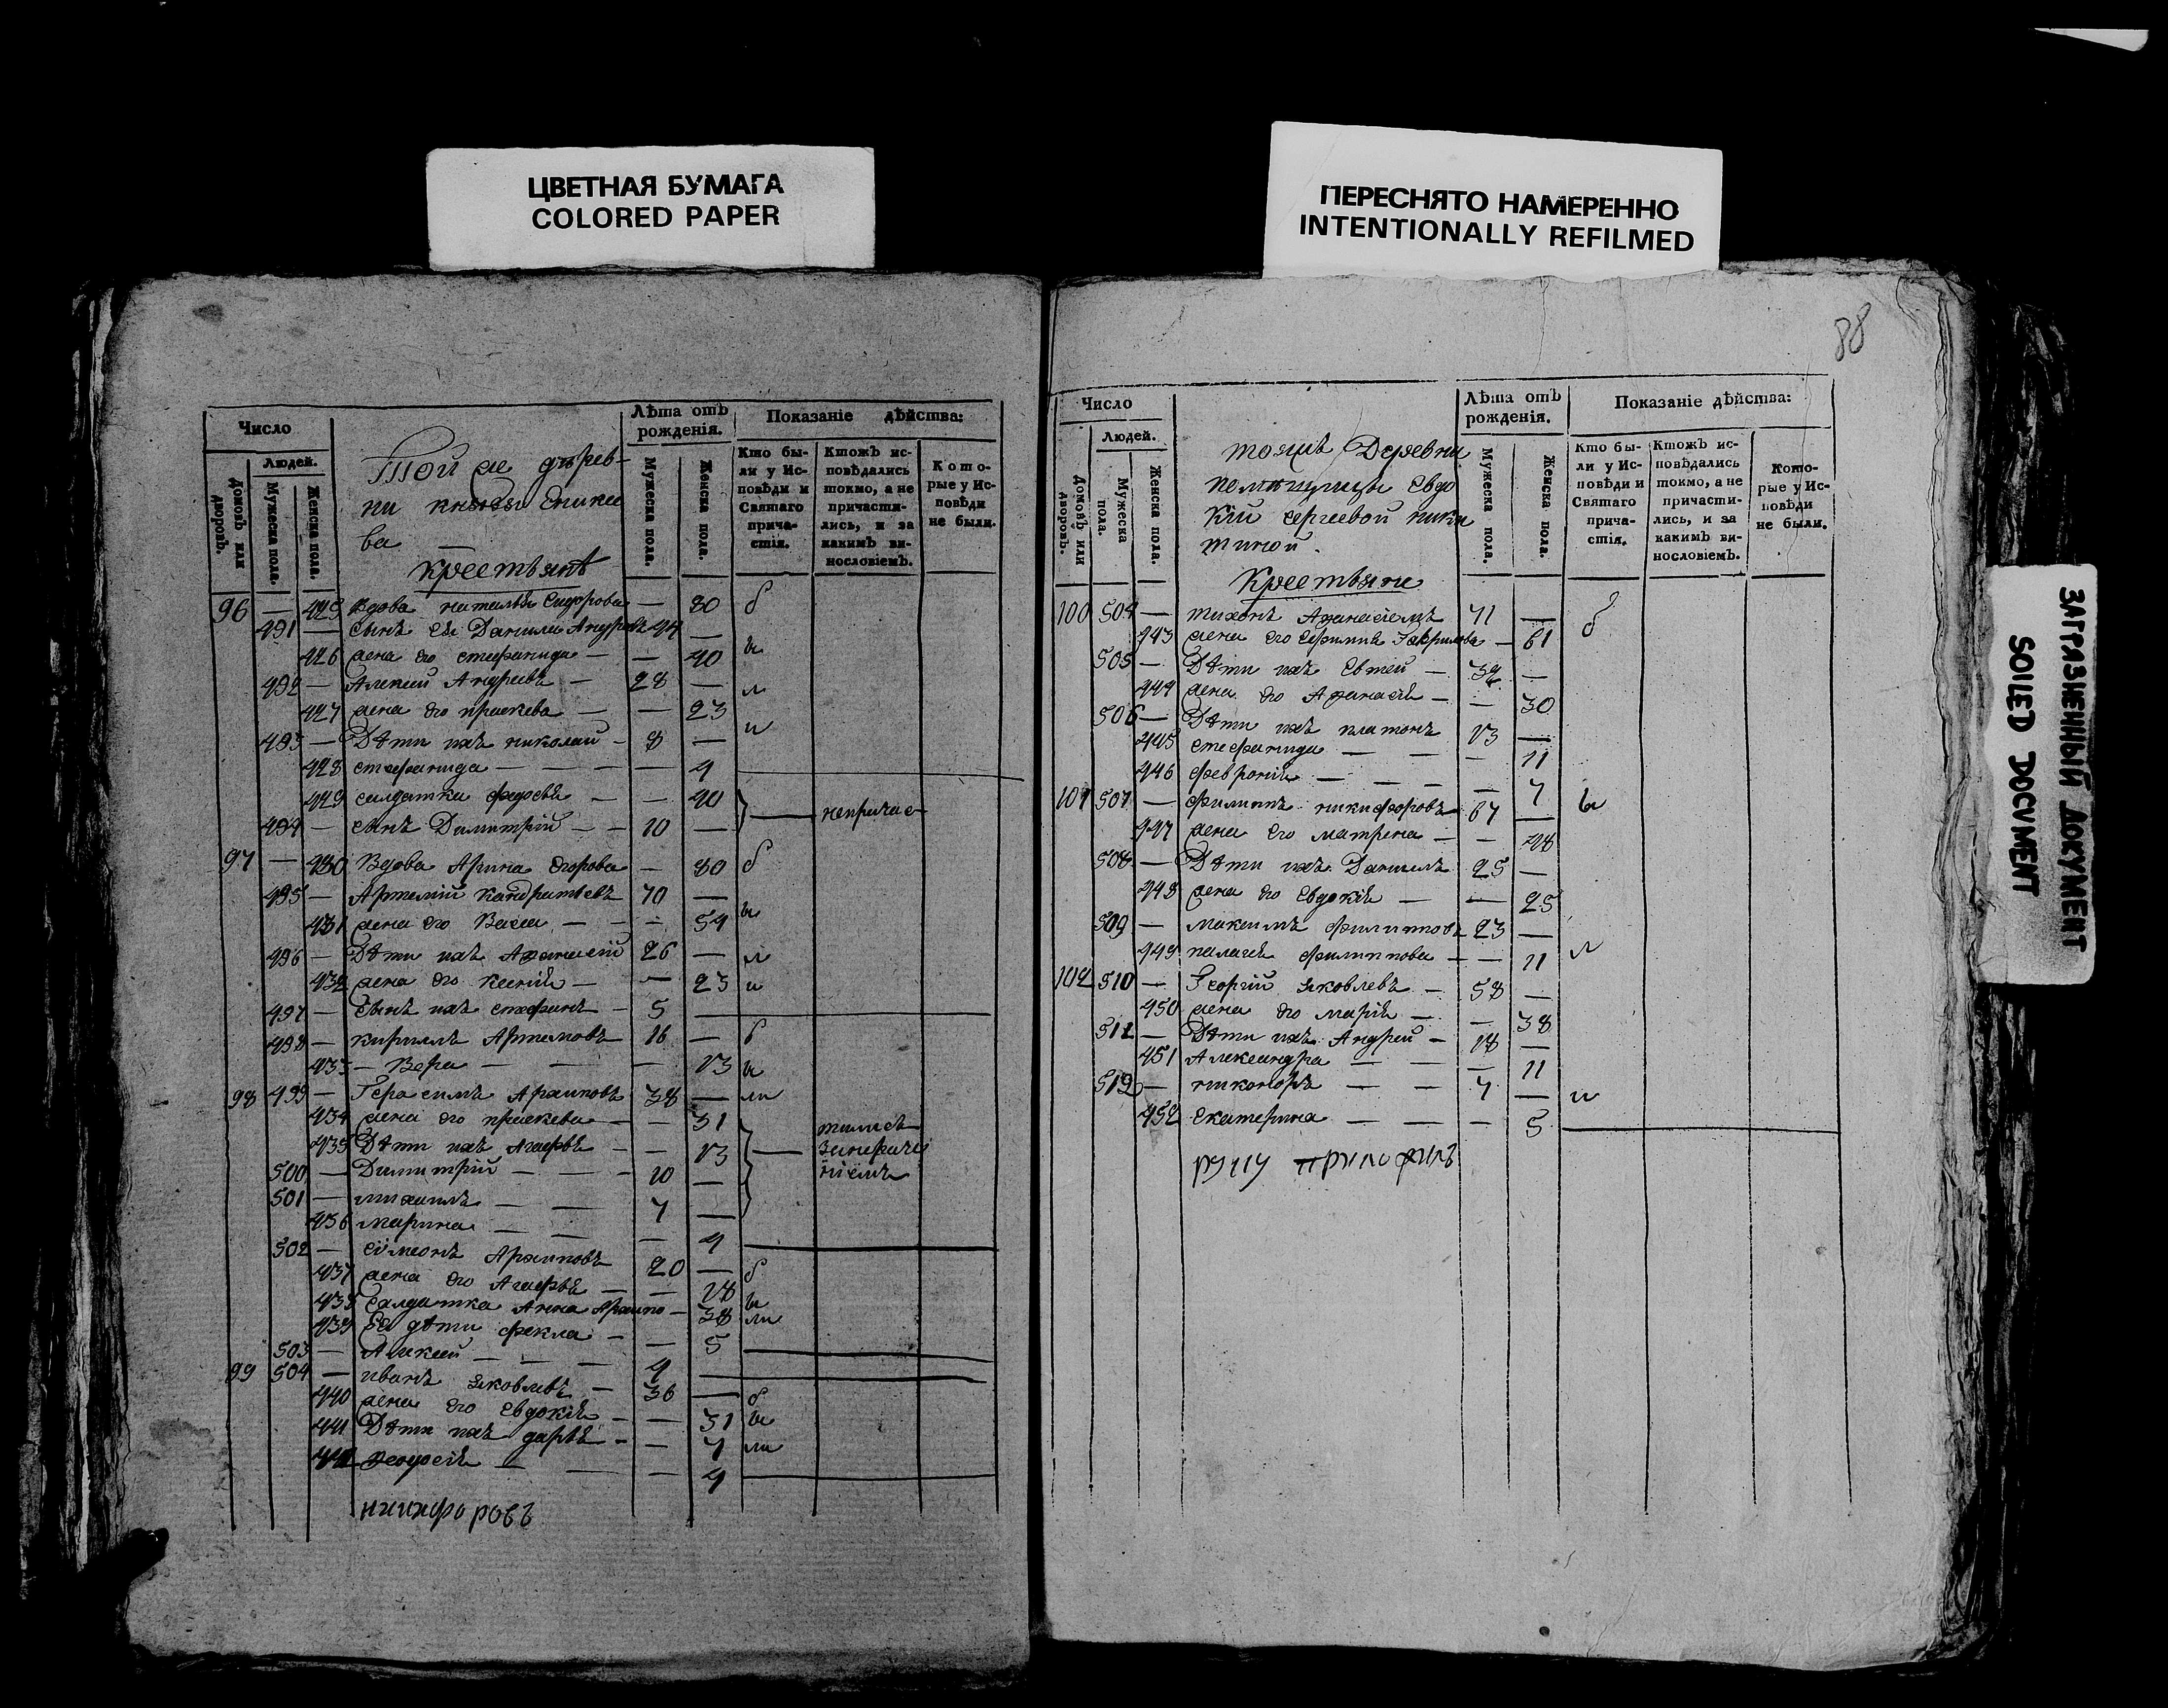 ЦВЕТНАЯ БУМАГА
COLORED PAPER
ПЕРЕСНЯТО НАМЕРЕННО
INTENTIONALLY REFILMED
ЗАГРЯЗНЕННЫЙ ДОКУМЕНТ
SOILED DOCUMENT
Число
Людей.
Домовъ или дворовъ.
Мужеска пола.
Женска пола.
Той же дерев-
ни князя Еникее
ва —
Крестьянѣ
Лѣта отъ рожденія.
Мужеска пола.
Женска пола.
Показаніе дѣйства:
Кто бы-
ли у Ис-
повѣди и
Святаго
прича-
стія.
Ктожъ ис-
повѣдались
токмо, а не
причасти-
лись, и за
какимъ ви-
нословіемъ.
Кото-
рые у Ис-
повѣди
не были.
96 — 425 Вдова наталья Сидорова — 80 б
491 — Сынъ ея Данила 44 —
426 жена его стефанида — — 40 ы
492 — Алексей Андреевъ — 28 — л
427 жена его праскева — — 23 и
493 — Дѣти ихъ николай — 8 —
428 стефанида — — — — 4
429 салдатка федосья — — 40
494 — сынъ Димитрій — — 10 — непричас
97 — 430 Вдова Арина Егорова — 80 б
495 — Артемій 70 —
431 жена его Васса — — 54 ы
496 — Дѣти ихъ Афанасій 26 — л
432 жена его ксенія — — 23 и
497 — Сынъ ихъ стефанъ — 5 —
498 — кириллъ Артемовъ 16 — б
433 — Вера — — — 13 ы
98 499 — Герасимъ Архиповъ 38 — ли
434 жена его праскева — — 31 тились
435 Дѣти ихъ Агафья — — 13
500 — Димитрій — — 10 —
501 — михаилъ — — 7 —
436 марина — — — 4
502 — сѵмеонъ Архиповъ 20 — б
437 жена его Агафья — — 18 ы
438 Салдатка Анна Архипо — 38 ли
439 Ея дѣти фекла — — 5
503 — Алексей — — — 4 —
99 504 — иванъ яковлевъ — 36 — б
440 жена его Евдокія — — 31 ы
441 Дѣти ихъ дарья — — 7 ли
442 феодосія — — — 4
никифоровъ
88
Число
Людей.
Домовъ или дворовъ.
Мужеска пола.
Женска пола.
тояже Деревни
помѣщицы Евдо
кіи сергеевой ники
тиной.
Крестьяни
Лѣта отъ рожденія.
Мужеска пола.
Женска пола.
Показаніе дѣйства:
Кто бы-
ли у Ис-
повѣди и
Святаго
прича-
стія.
Ктожъ ис-
повѣдались
токмо, а не
причасти-
лись, и за
какимъ ви-
нословіемъ.
Кото-
рые у Ис-
повѣди
не были.
100 504 — тихонъ 71 — б
443 жена его Гаврилова — 61
505 — Дѣти ихъ Евтей — 32 —
444 жена его — — 30
506 — Дѣти ихъ платонъ 13 —
445 стефанида — — — 11
446 февронія — — — — 7
101 507 — филиппъ никифоровъ 67 — ы
447 жена его матрена — — 48
508 — Дѣти ихъ Даниилъ 25 —
448 жена его Евдокія — — 25
509 — максимъ филипповъ 23 —
449 палагея филиппова — — 11 л
102 510 — Георгій яковлевъ — 58 —
450 жена его марія — — 38
511 — Дѣти ихъ Андрей — 18 —
451 Александра — — — 11
512 — никаноръ — — 7 — и
452 екатерина — — — 5
руку приложилъ